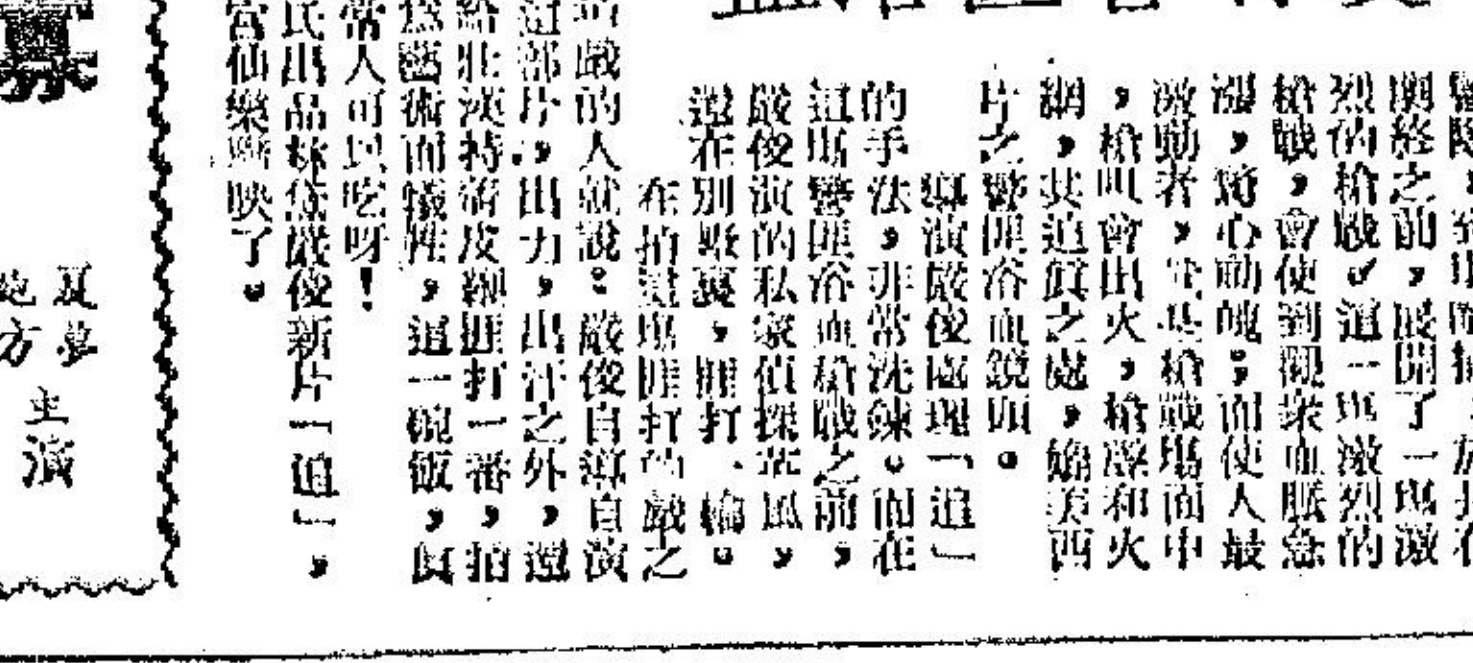 期終之前,展開了一場激
烈的槍戰。這一場激烈的
槍戰,會使到觀衆血脈急
漲,驚心動魄;而使人最
激動者,槍戰場面中
,槍咀會出火,槍聲和火
網,其迫眞之處,媲美西
片之警匪浴血鏡頭。
導演嚴俊處理「追」
的手法,非常洗鍊。而在
這場警匪浴血槍戰之前,
嚴俊演的私家偵探崔風,
還在別墅裏,捱打一輪。
在拍這塲捱打的戲之
戲的人就說:嚴俊自導自演
這部片,出力,出汗之外,還
給壯漢持着皮鞭捱打一番,拍
爲藝術而犧牲,這一碗飯,眞
常人可以吃呀!
氏出品林黛嚴俊新片「追」,
宮仙樂聯映了。
夏夢
鮑方
主演